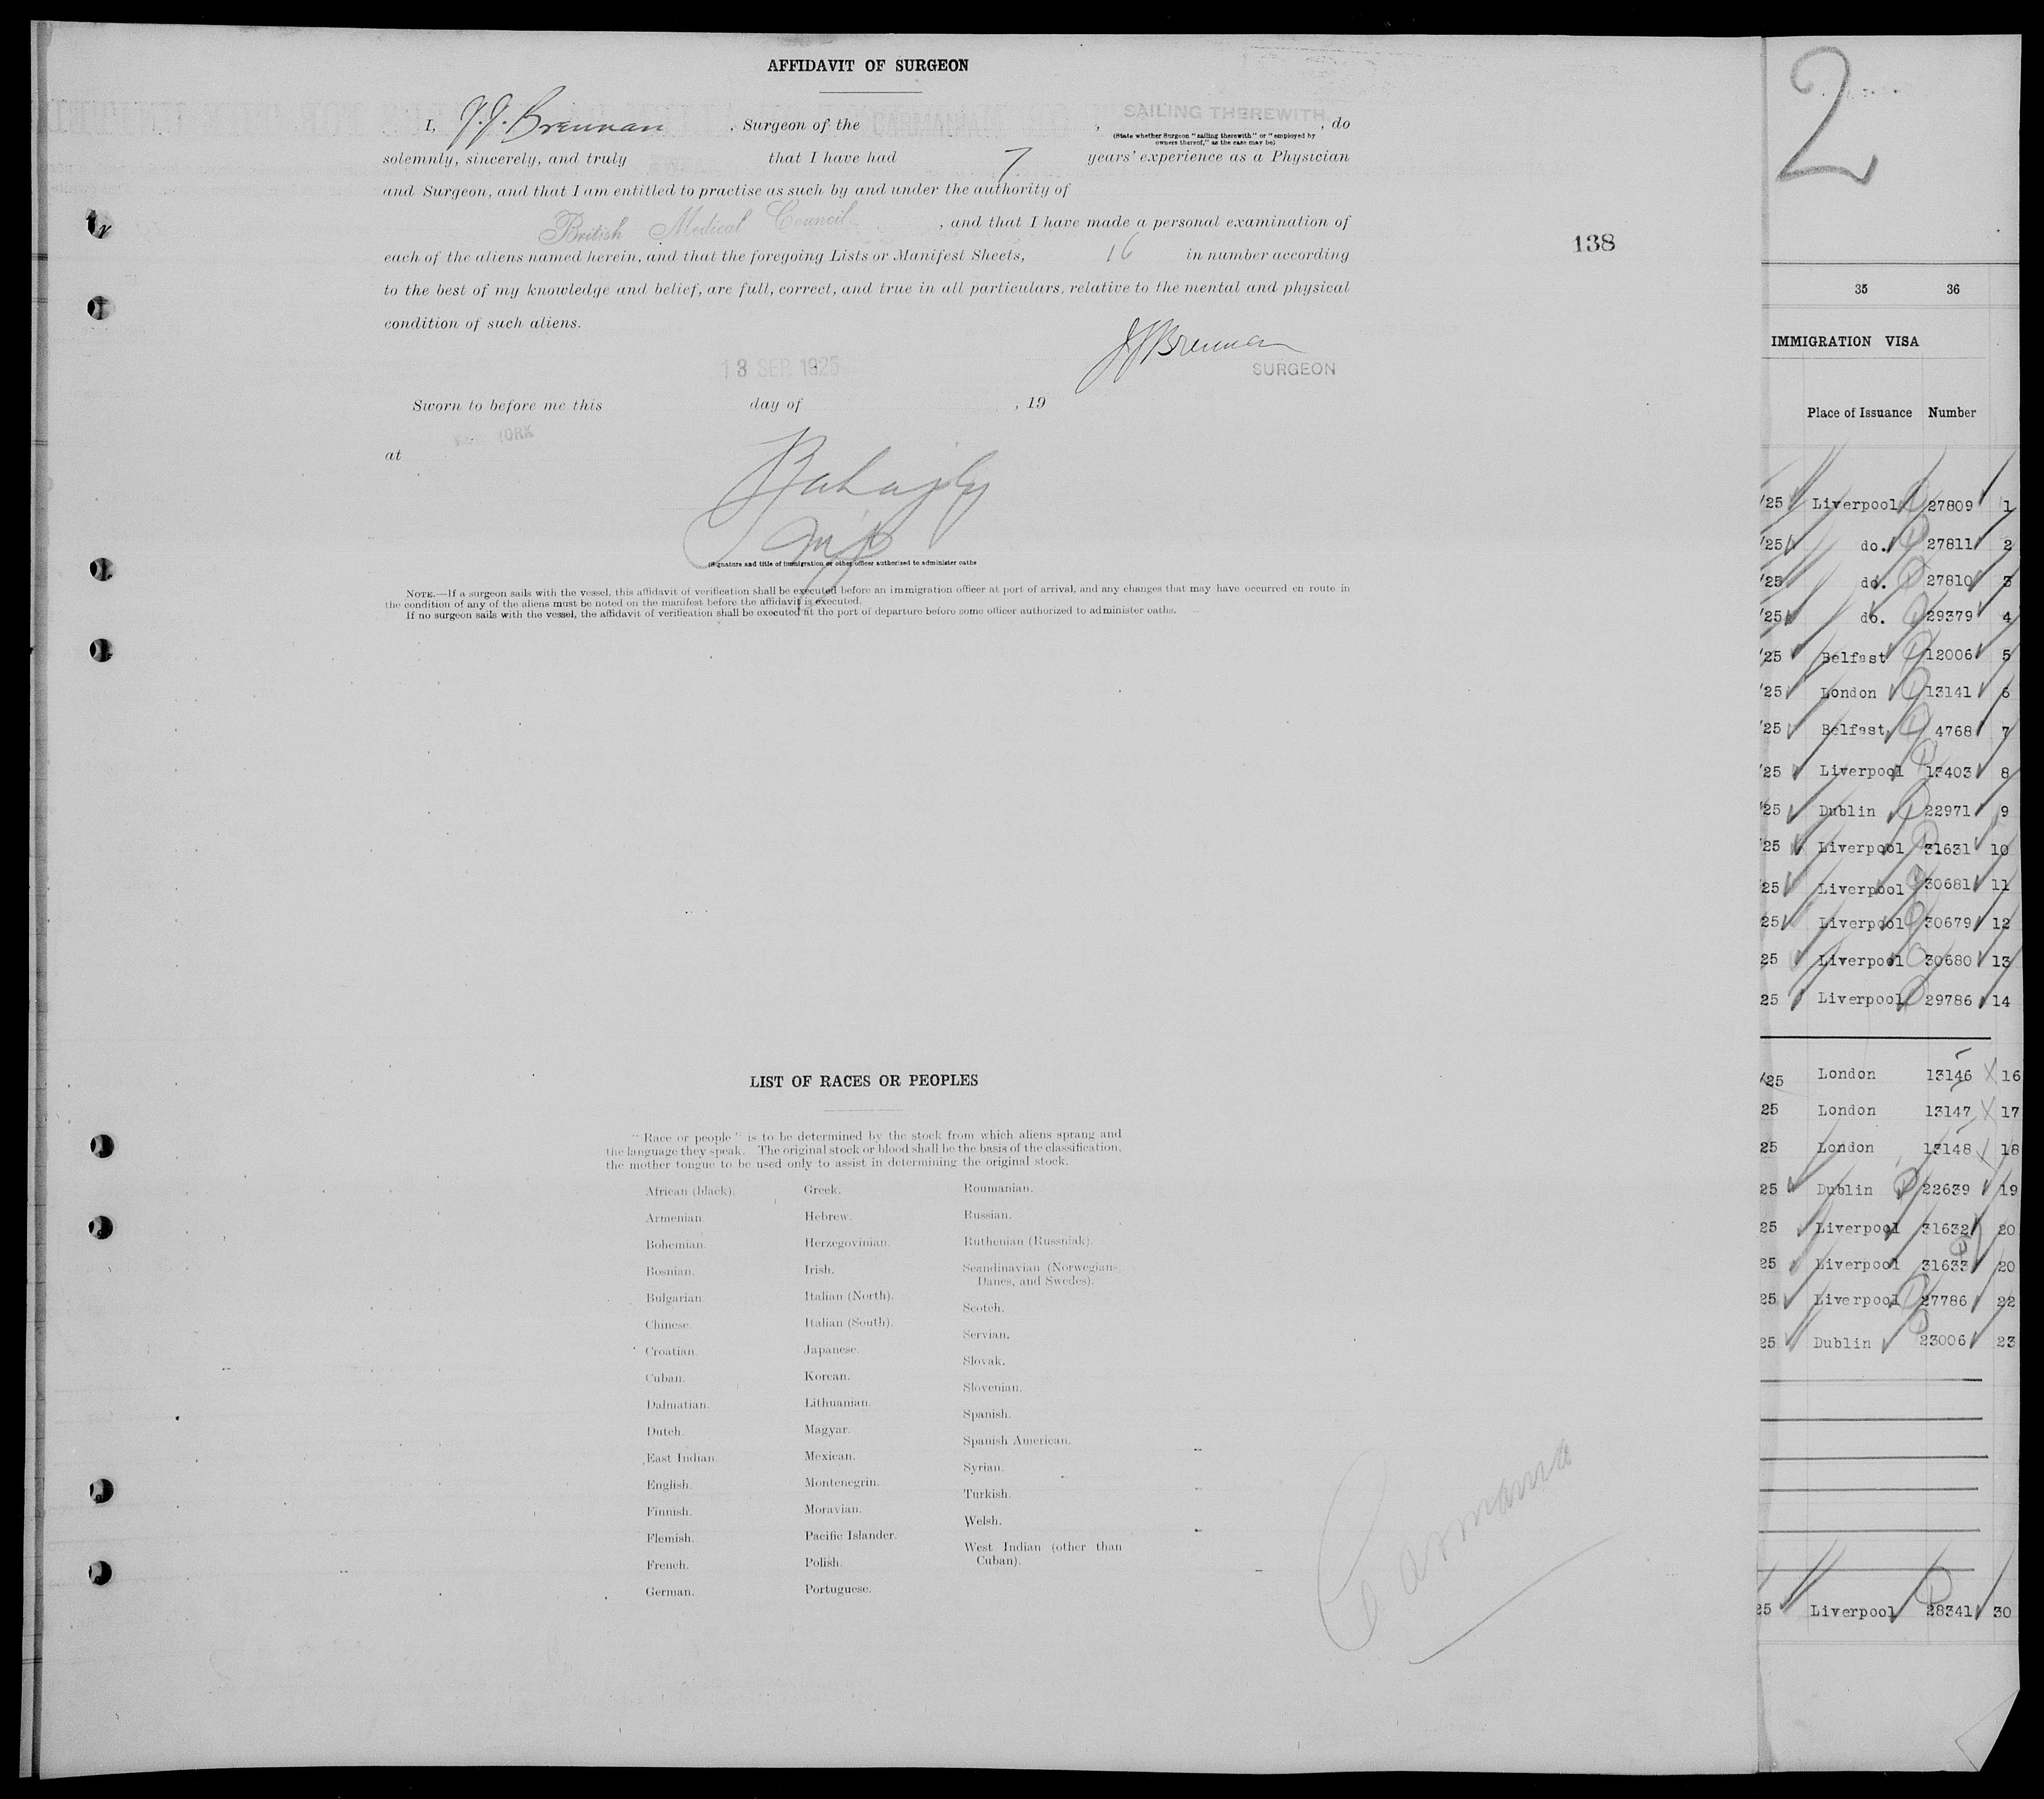 AFFIDAVIT OF SURGEON
SAILING THEREWITH
I, J. J. Brennan, Surgeon of the , , do
(State whether Surgeon "sailing therewith" or "employed by
owners thereof," as the case may be)
solemnly, sincerely, and truly that I have had 7 years' experience as a Physician
and Surgeon, and that I am entitled to practise as such by and under the authority of
British Medical Council, and that I have made a personal examination of
each of the aliens named herein, and that the foregoing Lists or Manifest Sheets, 16 in number according
to the best of my knowledge and belief, are full, correct, and true in all particulars, relative to the mental and physical
condition of such aliens.
J J Brennan
SURGEON
13 SEP. 1925
Sworn to before me this day of , 19
YORK
at
(Signature and title of immigration or other officer authorized to administer oaths
NOTE.—If a surgeon sails with the vessel, this affidavit of verification shall be executed before an immigration officer at port of arrival, and any changes that may have occurred en route in
the condition of any of the aliens must be noted on the manifest before the affidavit is executed.
If no surgeon sails with the vessel, the affidavit of verification shall be executed at the port of departure before some officer authorized to administer oaths.
138
LIST OF RACES OR PEOPLES
"Race or people" is to be determined by the stock from which aliens sprang and
the language they speak. The original stock or blood shall be the basis of the classification,
the mother tongue to be used only to assist in determining the original stock.
African (black).
Armenian.
Bohemian.
Bosnian.
Bulgarian.
Chinese.
Croatian.
Cuban.
Dalmatian.
Dutch.
East Indian.
English.
Finnish.
Flemish.
French.
German.
Greek.
Hebrew.
Herzegovinian.
Irish.
Italian (North).
Italian (South).
Japanese.
Korean.
Lithuanian.
Magyar.
Mexican.
Montenegrin.
Moravian.
Pacific Islander.
Polish.
Portuguese.
Roumanian.
Russian.
Ruthenian (Russniak).
Scandinavian (Norwegians,
Danes, and Swedes).
Scotch.
Servian.
Slovak.
Slovenian.
Spanish.
Spanish American.
Syrian.
Turkish.
Welsh.
West Indian (other than
Cuban).
Carmania
2
35 36
IMMIGRATION VISA
Place of Issuance Number
/25 Liverpool 27809 1
/25 do. 27811 2
/25 do. 27810 3
/25 do. 29379 4
/25 Belfast 12006 5
/25 London 13141 6
/25 Belfast 4768 7
/25 Liverpool 13403 8
/25 Dublin 22971 9
/25 Liverpool 31631 10
/25 Liverpool 30681 11
25 Liverpool 30679 12
25 Liverpool 30680 13
25 Liverpool 29786 14
/25 London 13146 16
25 London 13147 17
25 London 13148 18
25 Dublin 22639 19
25 Liverpool 31632 20
25 Liverpool 31633 20
25 Liverpool 27786 22
25 Dublin 23006 23
25 Liverpool 28341 30